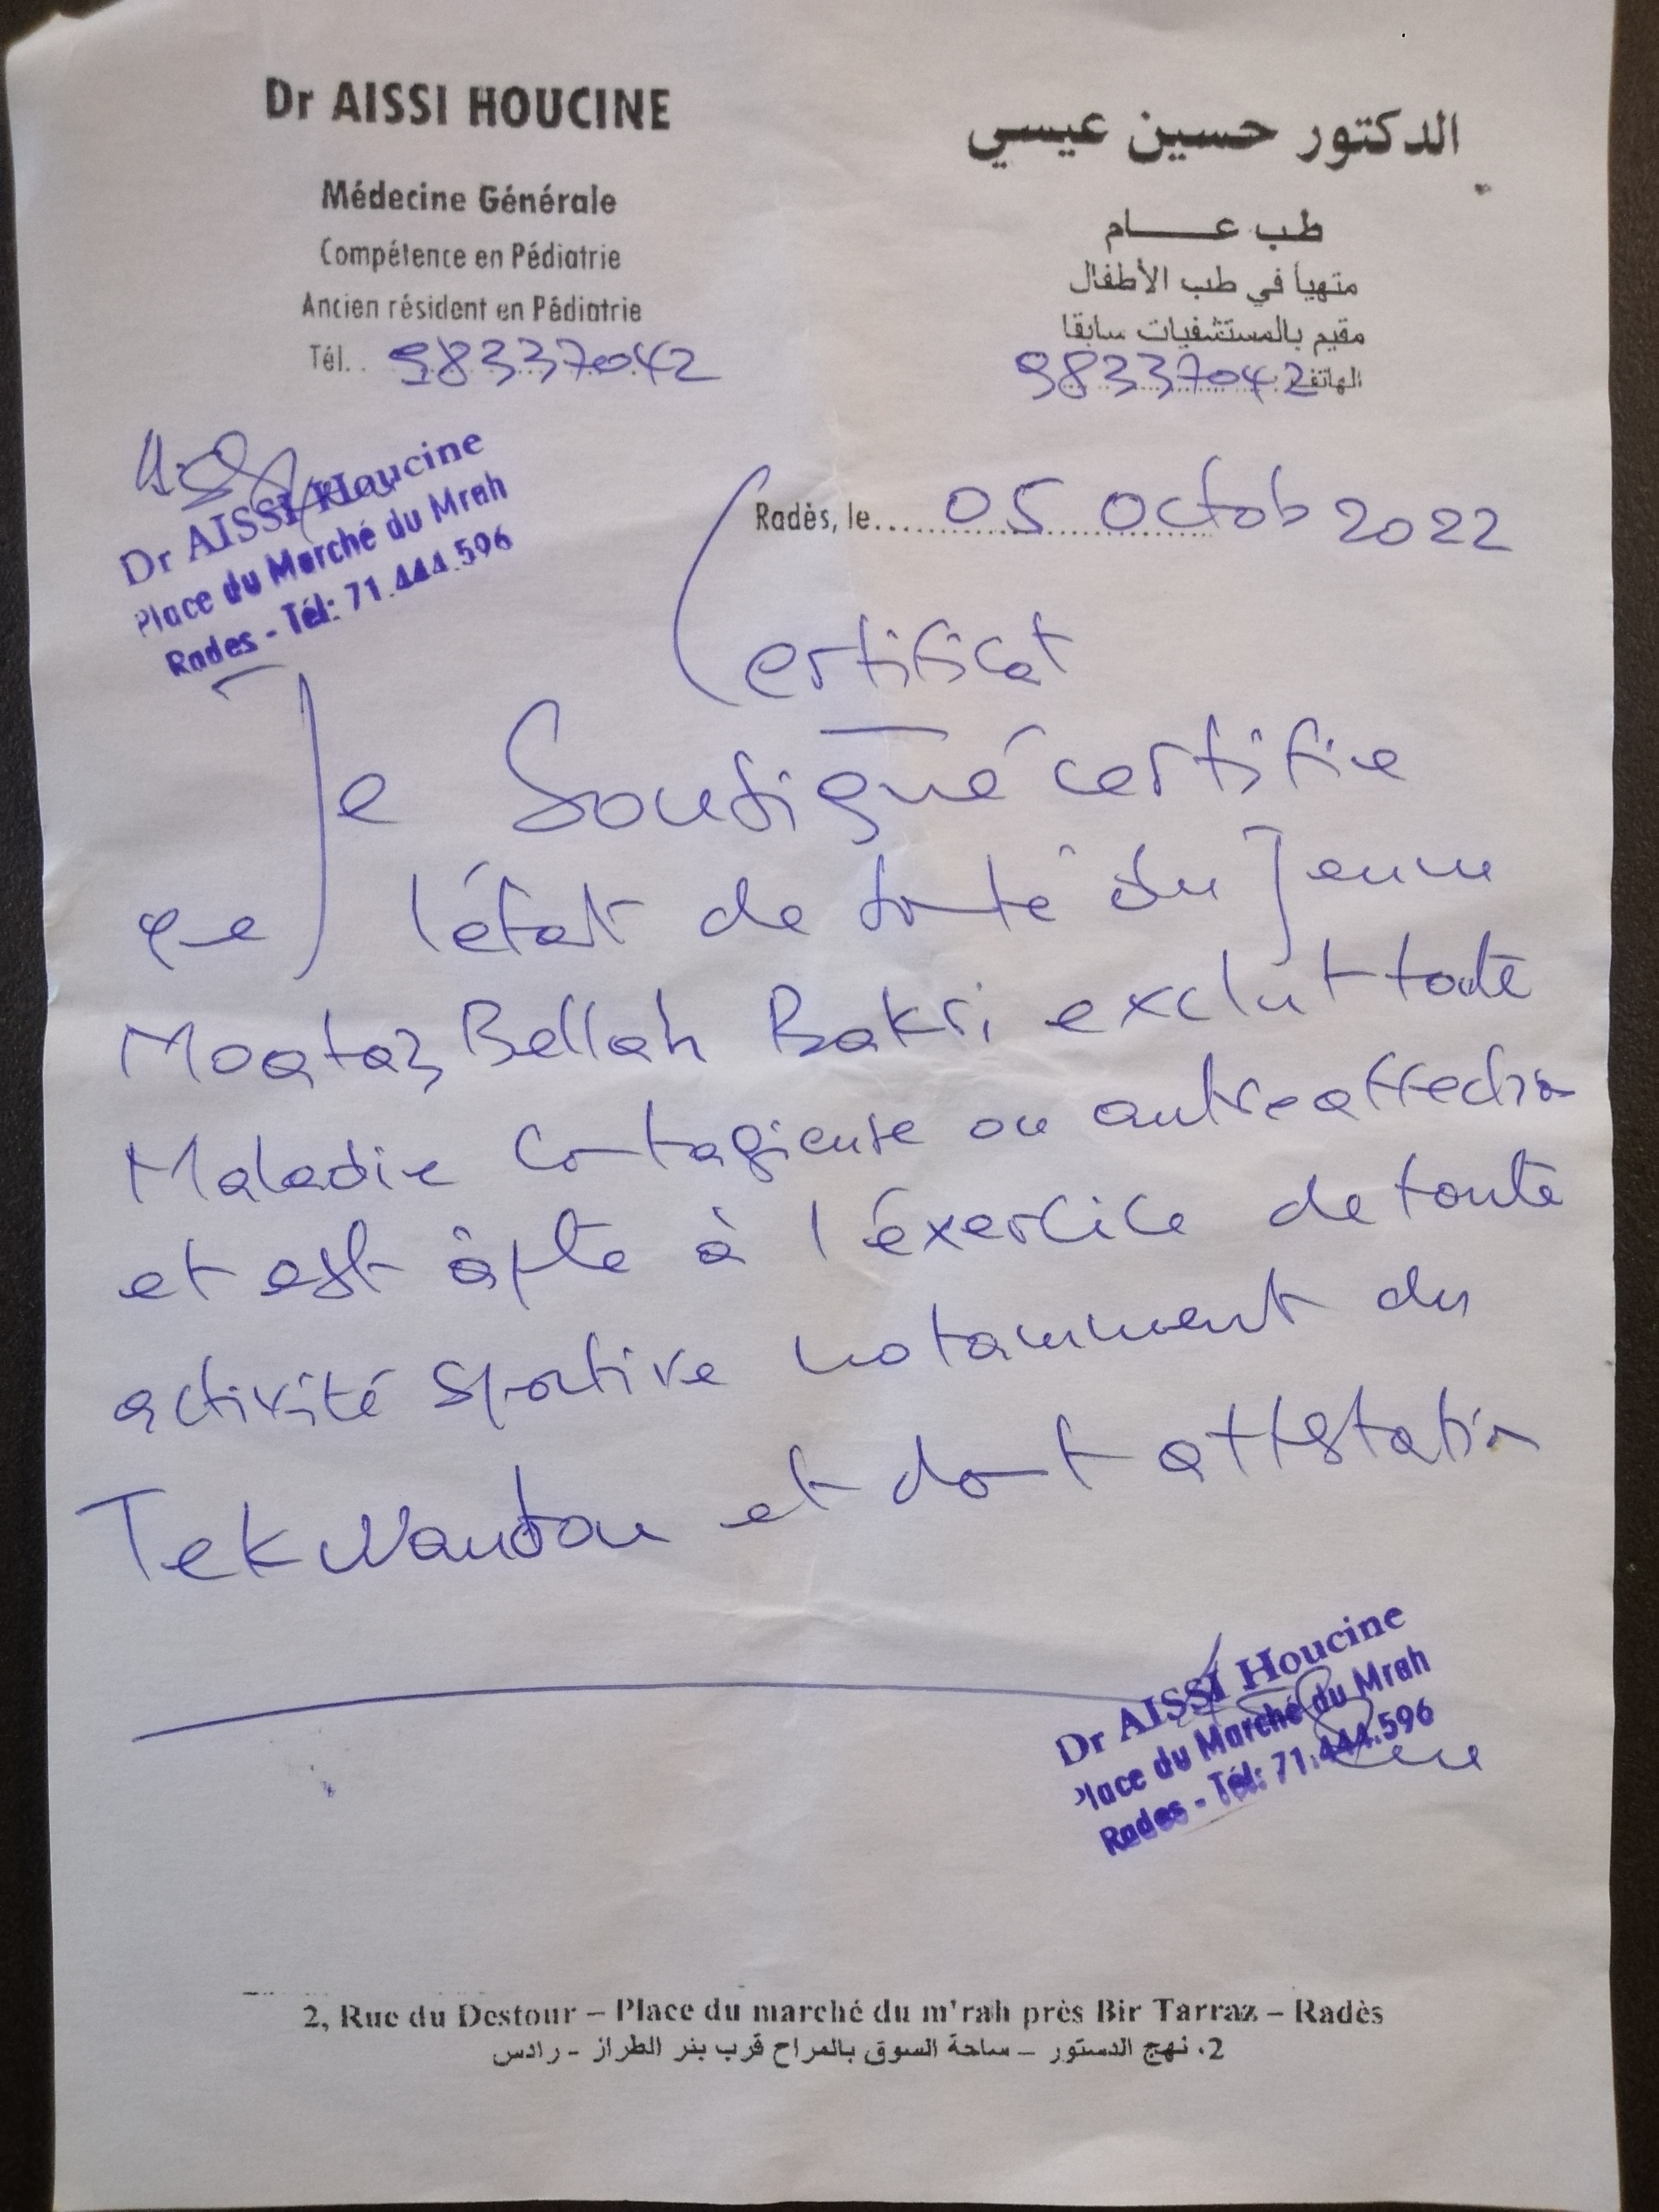 Dr AISSI HOUCINE
Médecine Générale
Compétence en Pédiatrie
Ancien résident en Pédiatrie
Tél. . 98337042
الدكتور حسين عيسي
طب عـــــام
متهيأ في طب الأطفال
مقيم بالمستشفيات سابقا
الهاتف 98337042
Dr AISSI Houcine
Place du Marché du Mrah
Rades - Tél: 71.444.596
Radès, le..... 05 Octob 2022
Certificat
Je Soussigné certifie
que l'état de santé du Jeune
Moataz Bellah Bakri exclut toute
Maladie Contagieuse ou autre affection
et est âpte à l'éxercice de toute
activité sportive notamment du
Tekwandou et dont attestation
Dr AISSI Houcine
Place du Marché du Mrah
Rades - Tél: 71.444.596
2, Rue du Destour – Place du marché du m'rah près Bir Tarraz – Radès
2، نهج الدستور – ساحة السوق بالمراح قرب بئر الطراز - رادس